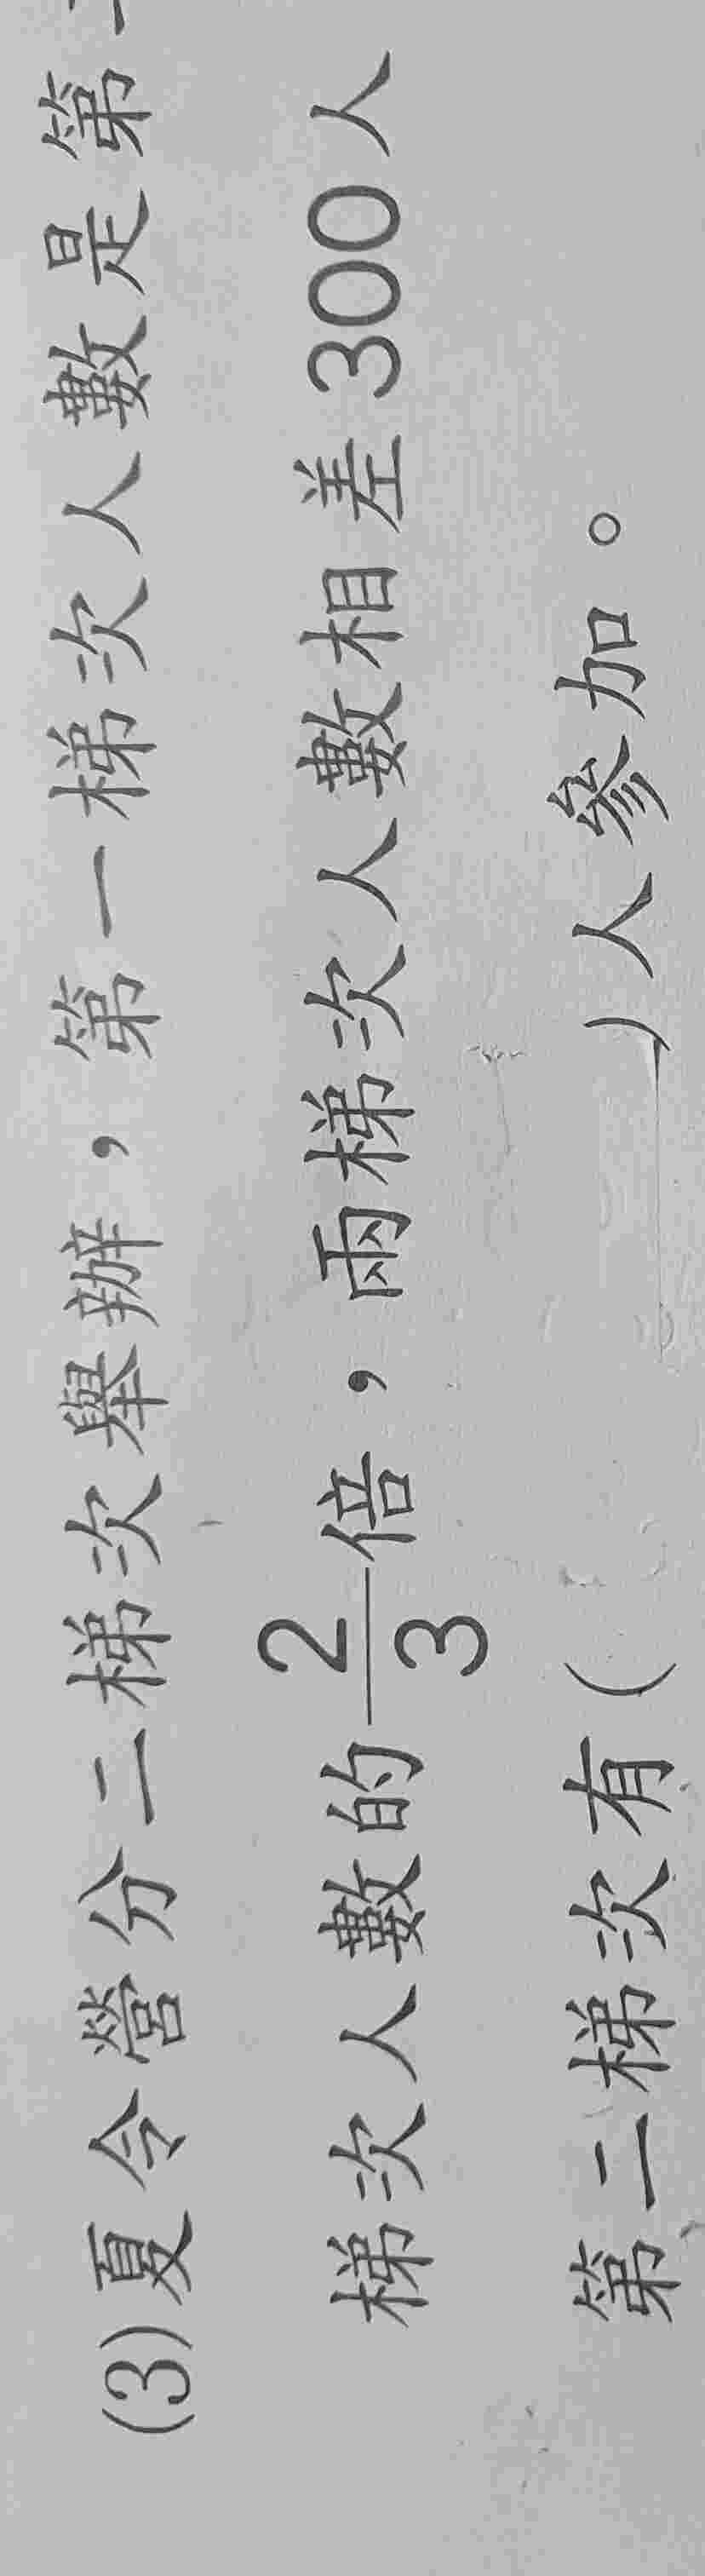 (3)夏令營分二梯次舉辦，第一梯次人數是第
梯次人數的2/3倍，兩梯次人數相差300人
第二梯次有(　　　)人參加。